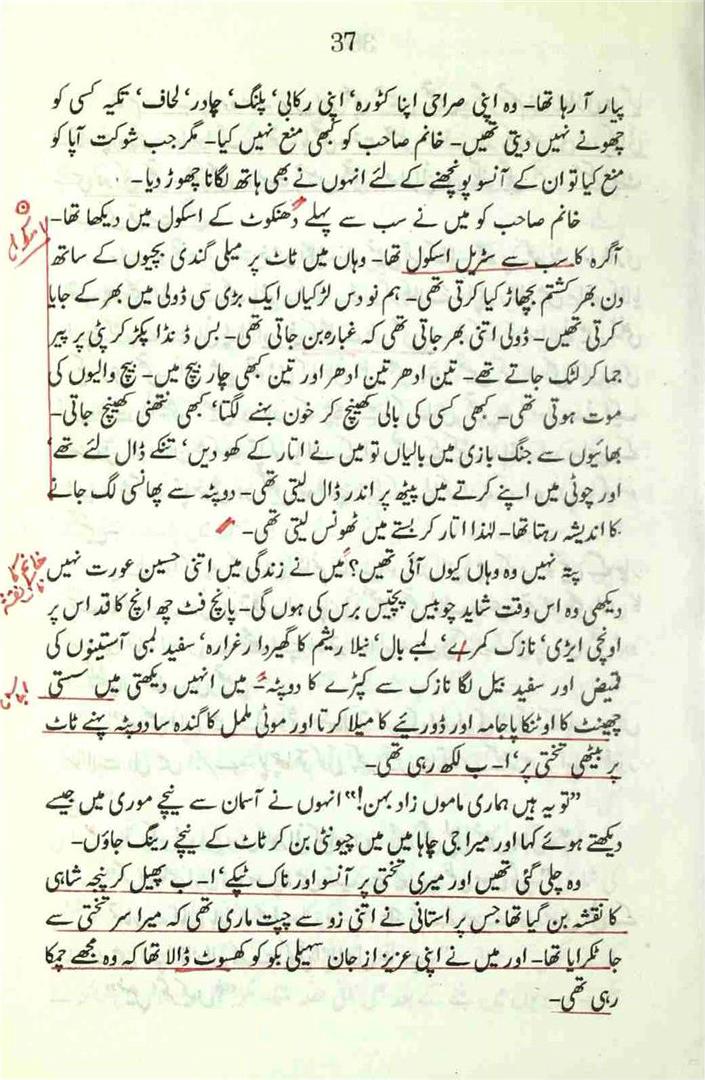 37
پیار آ رہا تھا۔ وہ اپنی صراحی اپنا کٹورہ، اپنی رکابی، پلنگ، چادر، لحاف، تکیہ کسی کو
چھونے نہیں دیتی تھیں۔ خانم صاحب کو کبھی منع نہیں کیا۔ مگر جب شوکت آپا کو
منع کیا تو ان کے آنسو پونچھنے کے لئے انہوں نے بھی ہاتھ لگانا چھوڑ دیا۔
خانم صاحب کو میں نے سب سے پہلے دھنکوٹ کے اسکول میں دیکھا تھا۔
آگرہ کا سب سے سٹریل اسکول تھا۔ وہاں میں ٹاٹ پر میلی گندی بچیوں کے ساتھ
دن بھر کشتم بچھاڑ کیا کرتی تھی۔ ہم نو دس لڑکیاں ایک بڑی سی ڈولی میں بھر کے جایا
کرتی تھیں۔ ڈولی اتنی بھر جاتی تھی کہ غبارہ بن جاتی تھی۔ بس ڈنڈا پکڑ کر پٹی پر پیر
جما کر لٹک جاتے تھے۔ تین ادھر تین ادھر اور تین کبھی چار بیچ میں۔ بیچ والیوں کی
موت ہوتی تھی۔ کبھی کسی کی بالی کھینچ کر خون بہنے لگتا، کبھی نتھنی کھینچ جاتی۔
بھائیوں سے جنگ بازی میں بالیاں تو میں نے اتار کے کھو دیں، تنکے ڈال لئے تھے،
اور چوٹی میں اپنے کرتے میں پیٹھ پر اندر ڈال لیتی تھی۔ دوپٹہ سے پھانسی لگ جانے
کا اندیشہ رہتا تھا۔ لہٰذا اتار کر بستے میں ٹھونس لیتی تھی۔
پتہ نہیں وہ وہاں کیوں آئی تھیں؟ میں نے زندگی میں اتنی حسین عورت نہیں
دیکھی وہ اس وقت شاید چوبیس پچیس برس کی ہوں گی۔ پانچ فٹ چھ انچ کا قد اس پر
اونچی ایڑی، نازک کمر، لمبے بال، نیلا ریشم کا گھیردار غرارہ، سفید لمبی آستینوں کی
قمیض اور سفید بیل لگا نازک سے کپڑے کا دوپٹہ۔ میں انہیں دیکھتی میں سستی
چھینٹ کا اوٹنکا پاجامہ اور ڈوریئے کا میلا کرتا اور موٹی ململ کا گندہ سا دوپٹہ پہنے ٹاٹ
پر بیٹھی تختی پر، ا۔ ب لکھ رہی تھی۔
”تو یہ ہیں ہماری ماموں زاد بہن!“ انہوں نے آسمان سے نیچے موری میں جیسے
دیکھتے ہوئے کہا اور میرا جی چاہا میں میں چیونٹی بن کر ٹاٹ کے نیچے رینگ جاؤں۔
وہ چلی گئی تھیں اور میری تختی پر آنسو اور ناک ٹپکے، ا۔ ب پھیل کر پنجہ شاہی
کا نقشہ بن گیا تھا جس پر استانی نے اتنی زو سے چپت ماری تھی کہ میرا سر تختی سے
جا ٹکرایا تھا۔ اور میں نے اپنی عزیز از جان سہیلی بکو کو کھسوٹ ڈالا تھا کہ وہ مجھے چمکا
رہی تھی۔